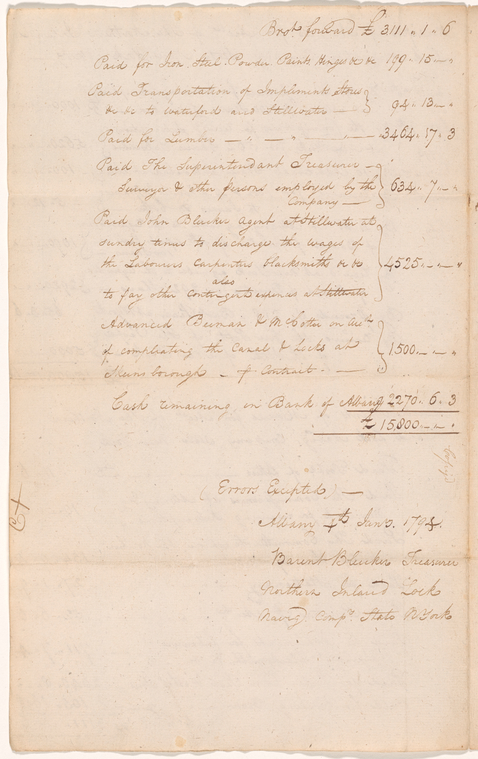 Brot. forward £ 3111 " 1 " 6
Paid for Iron Steel Powder Paint Hinges &c &c 199 " 15 — "
Paid Transportation of Implements Stores
&c &c to Waterford and Stillwater — 94 " 13 — "
Paid for Lumber — " — " — " — 3464 " 17 " 3
Paid The Superintendant Treasurer —
Surveyor & other persons employed by the 634 " 7 — "
Company —
Paid John Bleecker Agent at Stillwater at
sundry times to discharge the wages of
the Labourers Carpenters blacksmiths &c &c 4525 " — " — "
also
to pay other Contingent expences at Stillwater
Advanced Beeman & McCotter on Acct.
of compleating the Canal & Locks at 1500 — " — "
— Contract. —
Cash remaining in Bank of Albany 2270 " 6 " 3
£ 15,800 — " — "
(Errors Excepted) —
Albany 4th Jany. 1794.
Barent Bleecker Treasurer
Northern Inland Lock
Navig Compy. State N York